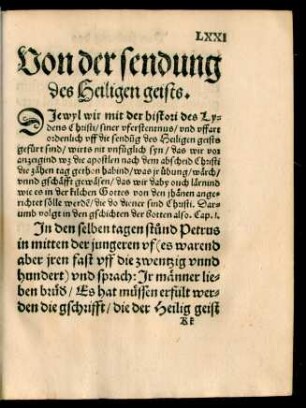 LXXI
Von der sendung
des Heiligen geists.
DJewyl wir mit der histori des Ly-
dens Christi/ siner vferstentnus/ vnd vffart
ordenlich vff die sendũg des Heiligen geists
gefürt sind/ wirts nit vnfüglich syn/ das wir vor
anzeigind wz die apostlen nach dem abscheid Christi
die zähen tag gethon habind/ was jr übung/ wärch/
vnnd gschäfft gewäsen/ das wir daby ouch lärnind
wie es in der kilchen Gottes von den jhänen ange-
richtet sölle werdē/ die do diener sind Christi. Dar-
umb volgt in den gschichten der Botten also. Cap. 1.
In den selben tagen stůnd Petrus
in mitten der jungeren vf (es warend
aber jren fast vff die zwentzig vnnd
hundert) vnd sprach: Jr männer lie-
ben brůd/ Es hat müssen erfült wer-
den die gschrifft/ die der Heilig geist